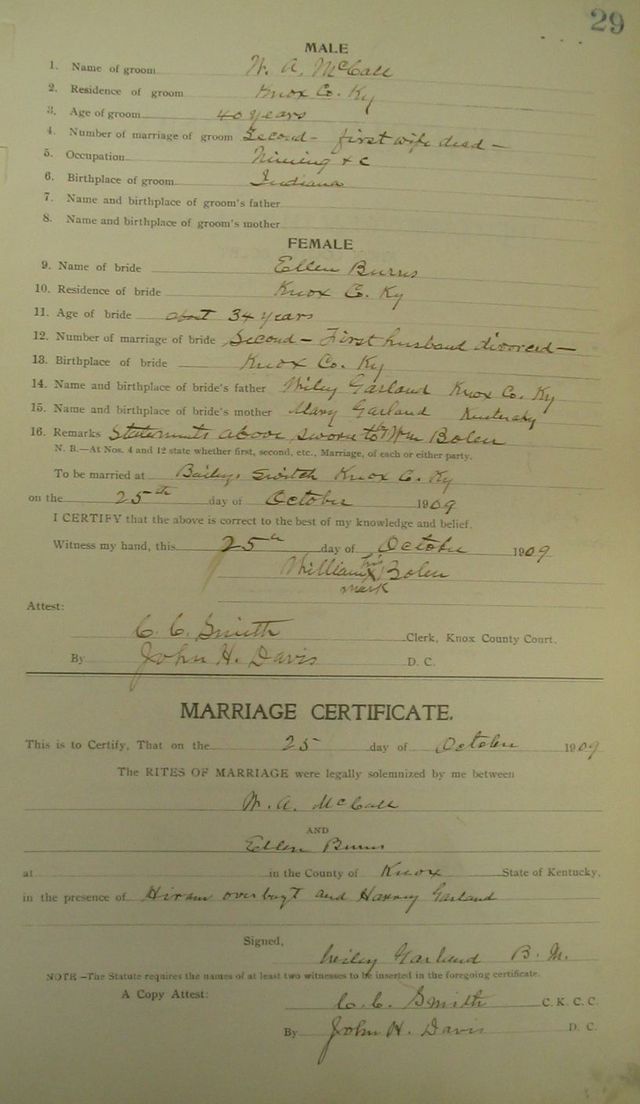 29
MALE
1. Name of groom W. A. McCall
2. Residence of groom Knox Co. Ky
3. Age of groom 40 years
4. Number of marriage of groom Second - first wife dead -
5. Occupation Mining & c
6. Birthplace of groom Indiana
7. Name and birthplace of groom's father
8. Name and birthplace of groom's mother
FEMALE
9. Name of bride Ellen Burns
10. Residence of bride Knox Co. Ky
11. Age of bride about 34 years
12. Number of marriage of bride Second - First husband divorced -
13. Birthplace of bride Knox Co. Ky
14. Name and birthplace of bride's father Wiley Garland Knox Co. Ky
15. Name and birthplace of bride's mother Mary Garland Kentucky
16. Remarks Statements above sworn to by Wm Bolen
N. B.—At Nos. 4 and 12 state whether first, second, etc., Marriage, of each or either party.
To be married at Baileys Switch Knox Co. Ky
on the 25th day of October 1909
I CERTIFY that the above is correct to the best of my knowledge and belief.
Witness my hand, this 25th day of October 1909
William his x Bolen
mark
Attest:
C. C. Smith Clerk, Knox County Court.
By John H. Davis D. C.
MARRIAGE CERTIFICATE.
This is to Certify, That on the 25 day of October 1909
The RITES OF MARRIAGE were legally solemnized by me between
W. A. McCall
AND
Ellen Burns
at in the County of Knox State of Kentucky,
in the presence of Hiram and Harvey Garland
Signed,
Wiley Garland B. M.
NOTE—The Statute requires the names of at least two witnesses to be inserted in the foregoing certificate.
A Copy Attest: C. C. Smith C. K. C. C.
By John H. Davis D. C.